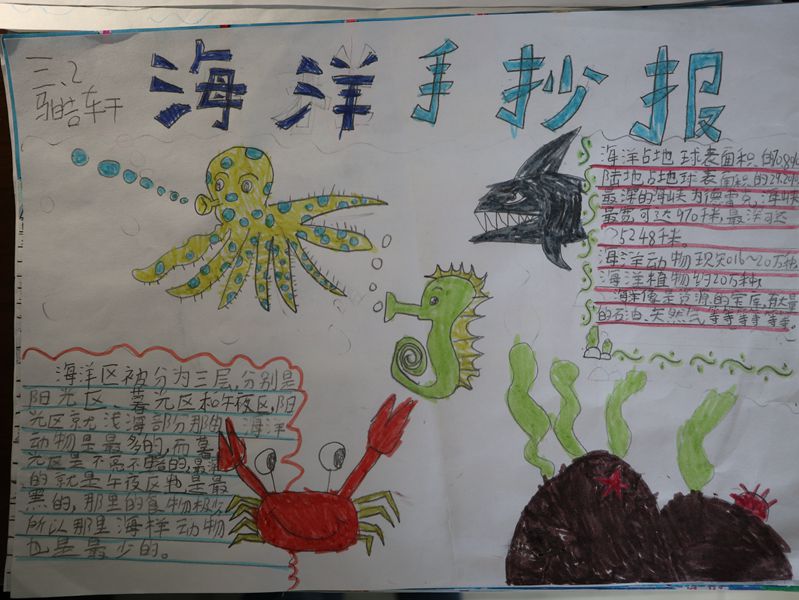 三、2
海洋手抄报
海洋占地球表面积的70.8%
陆地占地球表面积的29.2%
最深的海峡为德雷克海峡
最宽可达970千米,最深可达
5248千米。
海洋动物现知16~20万种,
海洋植物约20万种,
海洋像是资源的宝库,有大量
的石油、天然气等等等等等。
海洋区被分为三层,分别是
阳光区 暮光区和午夜区,阳
光区就 浅海部分那里 海洋
动物是最多的,而暮
光区是不亮不暗的,最
的就是午夜区 是最
黑的,那里的食物极少
所以那里海洋动物
也是最少的。